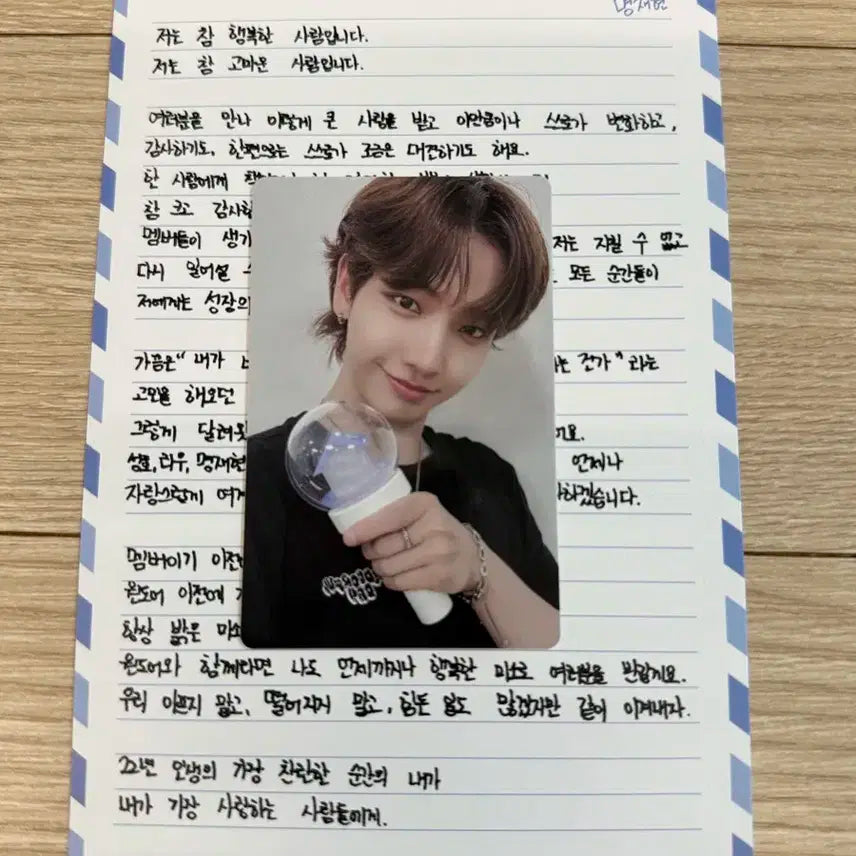 명재현
저는 참 행복한 사람입니다.
저는 참 고마운 사람입니다.
여러분을 만나 이렇게 큰 사랑을 받고 이만큼이나 스스로가 변화하고,
감사하기도, 한편으로는 스스로가 조금은 대견하기도 해요.
한 사람에게
참 크고 감사한
멤버들이 생기 저는 지칠 수 없고
다시 일어설 모든 순간들이
저에게는 성장의
가끔은 "내가 는 건가" 라는
고민을 해오던
그렇게 달려왔
성호, 리우, 명재현 언제나
자랑스럽게 여겨 하겠습니다.
멤버이기 이전
원도어 이전에
항상 밝은 미소
원도어와 함께라면 나도 언제까지나 행복한 미소로 여러분을 반길게요.
우리 아프지 말고, 떨어지지 말고, 힘든 일도 많겠지만 같이 이겨내자.
22년 인생의 가장 찬란한 순간의 내가
내가 가장 사랑하는 사람들에게.